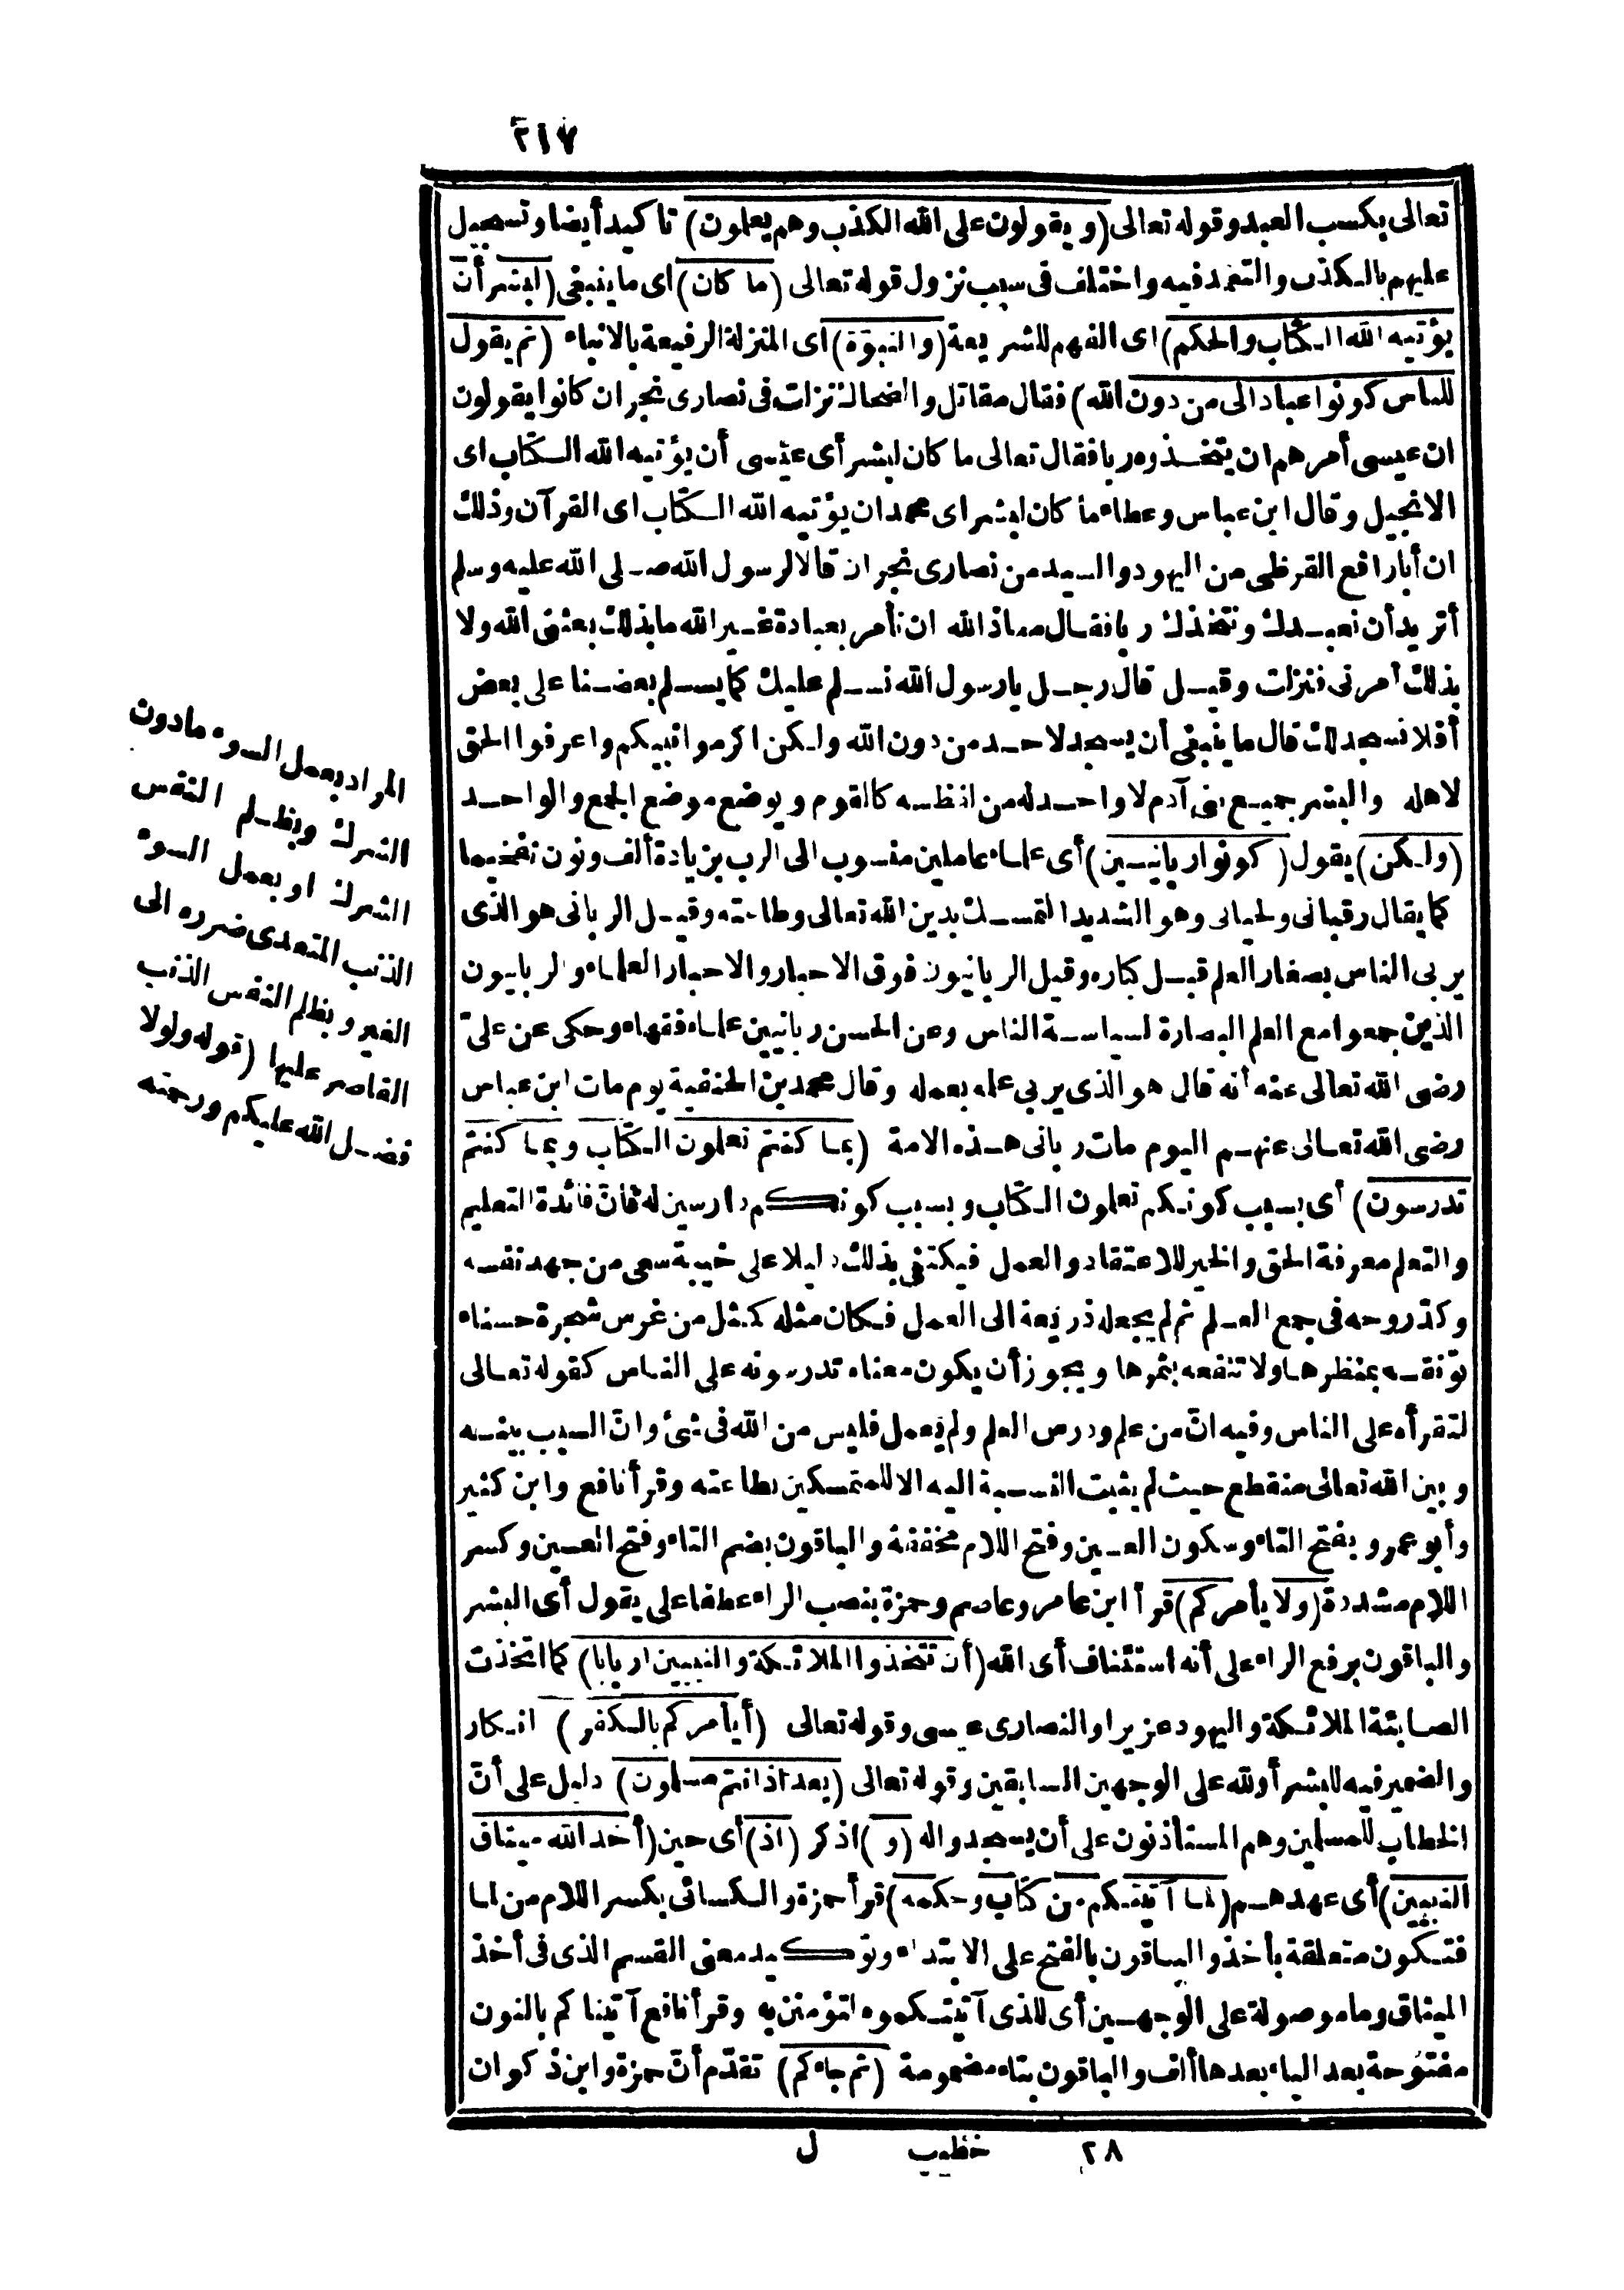 ٢١٧
تعالى بكسب العبد وقوله تعالى (ويقولون على الله الكذب وهم يعلمون) تاكيد أيضا وتسجيل
عليهم بالكذب والتعمد فيه واختلف فى سبب نزول قوله تعالى (ما كان) اى ما ينبغى (لبشر أن
يؤتيه الله الكتاب والحكم) اى الفهم للشريعة (والنبوّة) اى المنزلة الرفيعة بالانباء (ثم يقول
للناس كونوا عبادا لى من دون الله) فقال مقاتل والضحاك نزلت فى نصارى نجران كانوا يقولون
ان عيسى أمرهم ان يتخذوه ربا فقال تعالى ما كان لبشر أى عيسى أن يؤتيه الله الكتاب اى
الانجيل وقال ابن عباس وعطاء ما كان لبشر اى محمد ان يؤتيه الله الكتاب اى القرآن وذلك
ان أبا رافع القرظى من اليهود والسيد من نصارى نجران قالا لرسول الله صلى الله عليه وسلم
أتريد أن نعبدك ونتخذك ربا فقال معاذ الله ان نأمر بعبادة غير الله ما بذلك بعثنى الله ولا
بذلك أمرنى فنزلت وقيل قال رجل يا رسول الله نسلم عليك كما يسلم بعضنا على بعض
أفلا نسجد لك قال ما ينبغى أن يسجد لاحد من دون الله ولكن اكرموا نبيكم واعرفوا الحق
لاهله والبشر جميع بنى آدم لا واحد له من لفظه كالقوم ويوضع موضع الجمع والواحد
(ولكن) يقول (كونوا ربانيين) أى علماء عاملين منسوب الى الرب بزيادة ألف ونون تفخيما
كما يقال رقبانى ولحيانى وهو الشديد التمسك بدين الله تعالى وطاعته وقيل الربانى هو الذى
يربى الناس بصغار العلم قبل كباره وقيل الربانيون فوق الاحبار والاحبار العلماء والربانيون
الذين جمعوا مع العلم البصارة لسياسة الناس وعن الحسن ربانيين علماء فقهاء وحكى عن علىّ
رضى الله تعالى عنه أنه قال هو الذى يربى علمه بعمله وقال محمد بن الحنفية يوم مات ابن عباس
رضى الله تعالى عنهم اليوم مات ربانى هذه الامة (بما كنتم تعلمون الكتاب وبما كنتم
تدرسون) أى بسبب كونكم تعلمون الكتاب وبسبب كونكم دارسين له فانّ فائدة التعليم
والتعلم معرفة الحق والخير للاعتقاد والعمل فيكتفى بذلك دليلا على خيبة سعى من جهد نفسه
وكدّ روحه فى جمع العلم ثم لم يجعله ذريعة الى العمل فكان مثله كمثل من غرس شجرة حسناء
تؤنقه بمنظرها ولا تنفعه بثمرها ويجوز أن يكون معناه تدرسونه على الناس كقوله تعالى
لتقرأه على الناس وفيه انّ من علم ودرس العلم ولم يعمل فليس من الله فى شئ وانّ السبب بينه
وبين الله تعالى منقطع حيث لم يثبت النسبة اليه الا للمتمسكين بطاعته وقرأ نافع وابن كثير
وأبو عمرو بفتح التاء وسكون العين وفتح اللام مخففة والباقون بضم التاء وفتح العين وكسر
اللام مشددة (ولا يأمركم) قرأ ابن عامر وعاصم وحمزة بنصب الراء عطفا على يقول أى البشر
والباقون برفع الراء على أنه استئناف أى الله (أن تتخذوا الملائكة والنبيين اربابا) كما اتخذت
الصابئة الملائكة واليهود عزيرا والنصارى عيسى وقوله تعالى (أيأمركم بالكفر) انكار
والضمير فيه للبشر أو لله على الوجهين السابقين وقوله تعالى (بعد اذ انتم مسلمون) دليل على أنّ
الخطاب للمسلمين وهم المستأذنون على أن يسجدوا له (و) اذكر (اذ) أى حين (أخذ الله ميثاق
النبيين) أى عهدهم (لما آتيتكم من كتاب وحكمة) قرأ حمزة والكسائى بكسر اللام من لما
فتكون متعلقة بأخذ والباقون بالفتح على الابتداء وتوكيد معنى القسم الذى فى أخذ
الميثاق وما موصولة على الوجهين أى للذى آتيتكموه لتؤمنن به وقرأ نافع آتيناكم بالنون
مفتوحة بعد الياء بعدها ألف والباقون بتاء مضمومة (ثم جاءكم) تقدّم أنّ حمزة وابن ذكوان
المراد بعمل السوء ما دون
الشرك وبظلم النفس
الشرك او بعمل السوء
الذنب المتعدى ضرره الى
الغير وبظلم النفس الذنب
القاصر عليها (قوله ولولا
فضل الله عليكم ورحمته
٢٨ خطيب ل